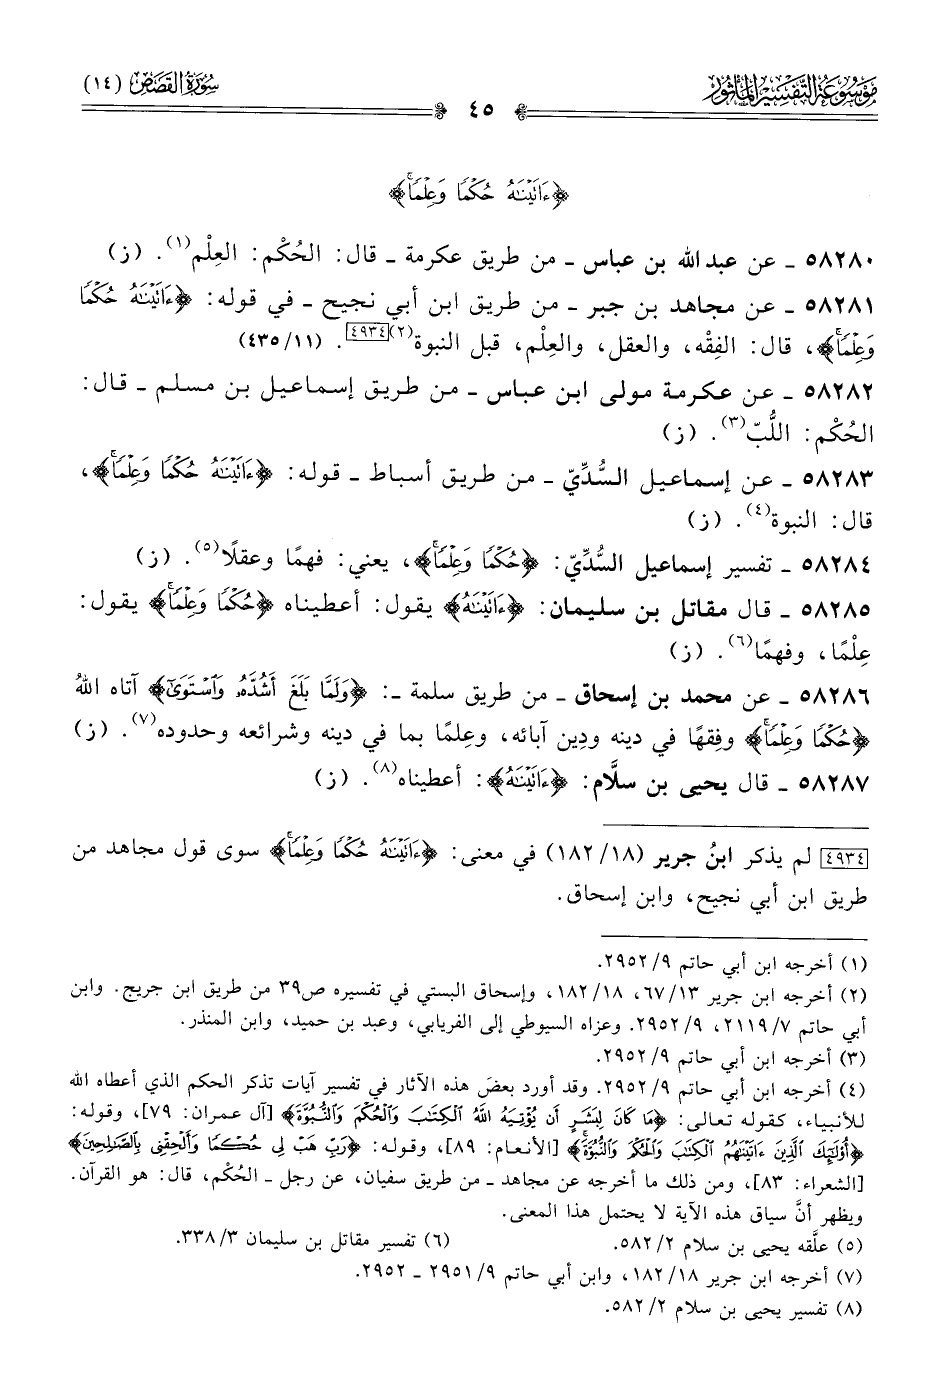 موسوعة التفسير المأثور
سورة القصص (١٤)
٤٥
﴿ءَاتَيْنَٰهُ حُكْمًا وَعِلْمًاۚ﴾
٥٨٢٨٠ ـ عن عبد الله بن عباس ـ من طريق عكرمة ـ قال: الحُكْم: العِلْم(١). (ز)
٥٨٢٨١ ـ عن مجاهد بن جبر ـ من طريق ابن أبي نجيح ـ في قوله: ﴿ءَاتَيْنَٰهُ حُكْمًا
وَعِلْمًاۚ﴾، قال: الفِقْه، والعقل، والعِلْم، قبل النبوة(٢)[٤٩٣٤]. (١١/ ٤٣٥)
٥٨٢٨٢ ـ عن عكرمة مولى ابن عباس ـ من طريق إسماعيل بن مسلم ـ قال:
الحُكْم: اللُّبّ(٣). (ز)
٥٨٢٨٣ ـ عن إسماعيل السُّدِّيّ ـ من طريق أسباط ـ قوله: ﴿ءَاتَيْنَٰهُ حُكْمًا وَعِلْمًاۚ﴾،
قال: النبوة(٤). (ز)
٥٨٢٨٤ ـ تفسير إسماعيل السُّدِّيّ: ﴿حُكْمًا وَعِلْمًاۚ﴾، يعني: فهمًا وعقلًا(٥). (ز)
٥٨٢٨٥ ـ قال مقاتل بن سليمان: ﴿ءَاتَيْنَٰهُ﴾ يقول: أعطيناه ﴿حُكْمًا وَعِلْمًاۚ﴾ يقول:
عِلْمًا، وفهمًا(٦). (ز)
٥٨٢٨٦ ـ عن محمد بن إسحاق ـ من طريق سلمة ـ: ﴿وَلَمَّا بَلَغَ أَشُدَّهُۥ وَٱسْتَوَىٰٓ﴾ آتاه اللهُ
﴿حُكْمًا وَعِلْمًاۚ﴾ وفِقهًا في دينه ودِين آبائه، وعِلمًا بما في دينه وشرائعه وحدوده(٧). (ز)
٥٨٢٨٧ ـ قال يحيى بن سلَّام: ﴿ءَاتَيْنَٰهُ﴾: أعطيناه(٨). (ز)
[٤٩٣٤] لم يذكر ابنُ جرير (١٨/ ١٨٢) في معنى: ﴿ءَاتَيْنَٰهُ حُكْمًا وَعِلْمًاۚ﴾ سوى قول مجاهد من
طريق ابن أبي نجيح، وابن إسحاق.
(١) أخرجه ابن أبي حاتم ٩/ ٢٩٥٢.
(٢) أخرجه ابن جرير ١٣/ ٦٧، ١٨/ ١٨٢، وإسحاق البستي في تفسيره ص٣٩ من طريق ابن جريج. وابن
أبي حاتم ٧/ ٢١١٩، ٩/ ٢٩٥٢. وعزاه السيوطي إلى الفريابي، وعبد بن حميد، وابن المنذر.
(٣) أخرجه ابن أبي حاتم ٩/ ٢٩٥٢.
(٤) أخرجه ابن أبي حاتم ٩/ ٢٩٥٢. وقد أورد بعضَ هذه الآثار في تفسير آيات تذكر الحكم الذي أعطاه الله
للأنبياء، كقوله تعالى: ﴿مَا كَانَ لِبَشَرٍ أَن يُؤْتِيَهُ ٱللَّهُ ٱلْكِتَٰبَ وَٱلْحُكْمَ وَٱلنُّبُوَّةَ﴾ [آل عمران: ٧٩]، وقوله:
﴿أُو۟لَٰٓئِكَ ٱلَّذِينَ ءَاتَيْنَٰهُمُ ٱلْكِتَٰبَ وَٱلْحُكْمَ وَٱلنُّبُوَّةَۚ﴾ [الأنعام: ٨٩]، وقوله: ﴿رَبِّ هَبْ لِى حُكْمًا وَأَلْحِقْنِى بِٱلصَّٰلِحِينَ﴾
[الشعراء: ٨٣]، ومن ذلك ما أخرجه عن مجاهد ـ من طريق سفيان، عن رجل ـ الحُكْم، قال: هو القرآن.
ويظهر أنَّ سياق هذه الآية لا يحتمل هذا المعنى.
(٥) علَّقه يحيى بن سلام ٢/ ٥٨٢.
(٦) تفسير مقاتل بن سليمان ٣/ ٣٣٨.
(٧) أخرجه ابن جرير ١٨/ ١٨٢، وابن أبي حاتم ٩/ ٢٩٥١ ـ ٢٩٥٢.
(٨) تفسير يحيى بن سلام ٢/ ٥٨٢.